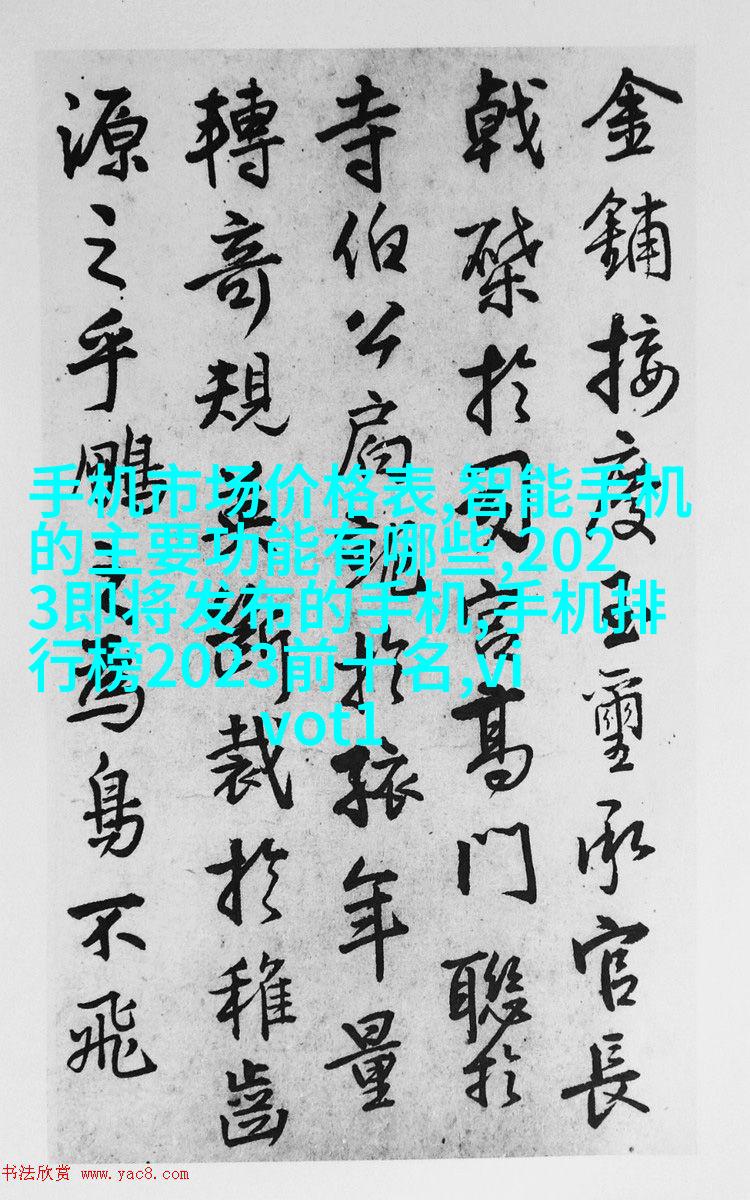 金鋪接慶玉璽承官長
戟棨於司宫高門聯於
寺伯公於孩年量
轉奇規斷裁於稚齒
源之乎鵬鳥不飛
手机市场价格表,智能手机
的主要功能有哪些,202
3即将发布的手机,手机排
行榜2023前十名,vi
vot1
书法欣赏 www.yac8.com